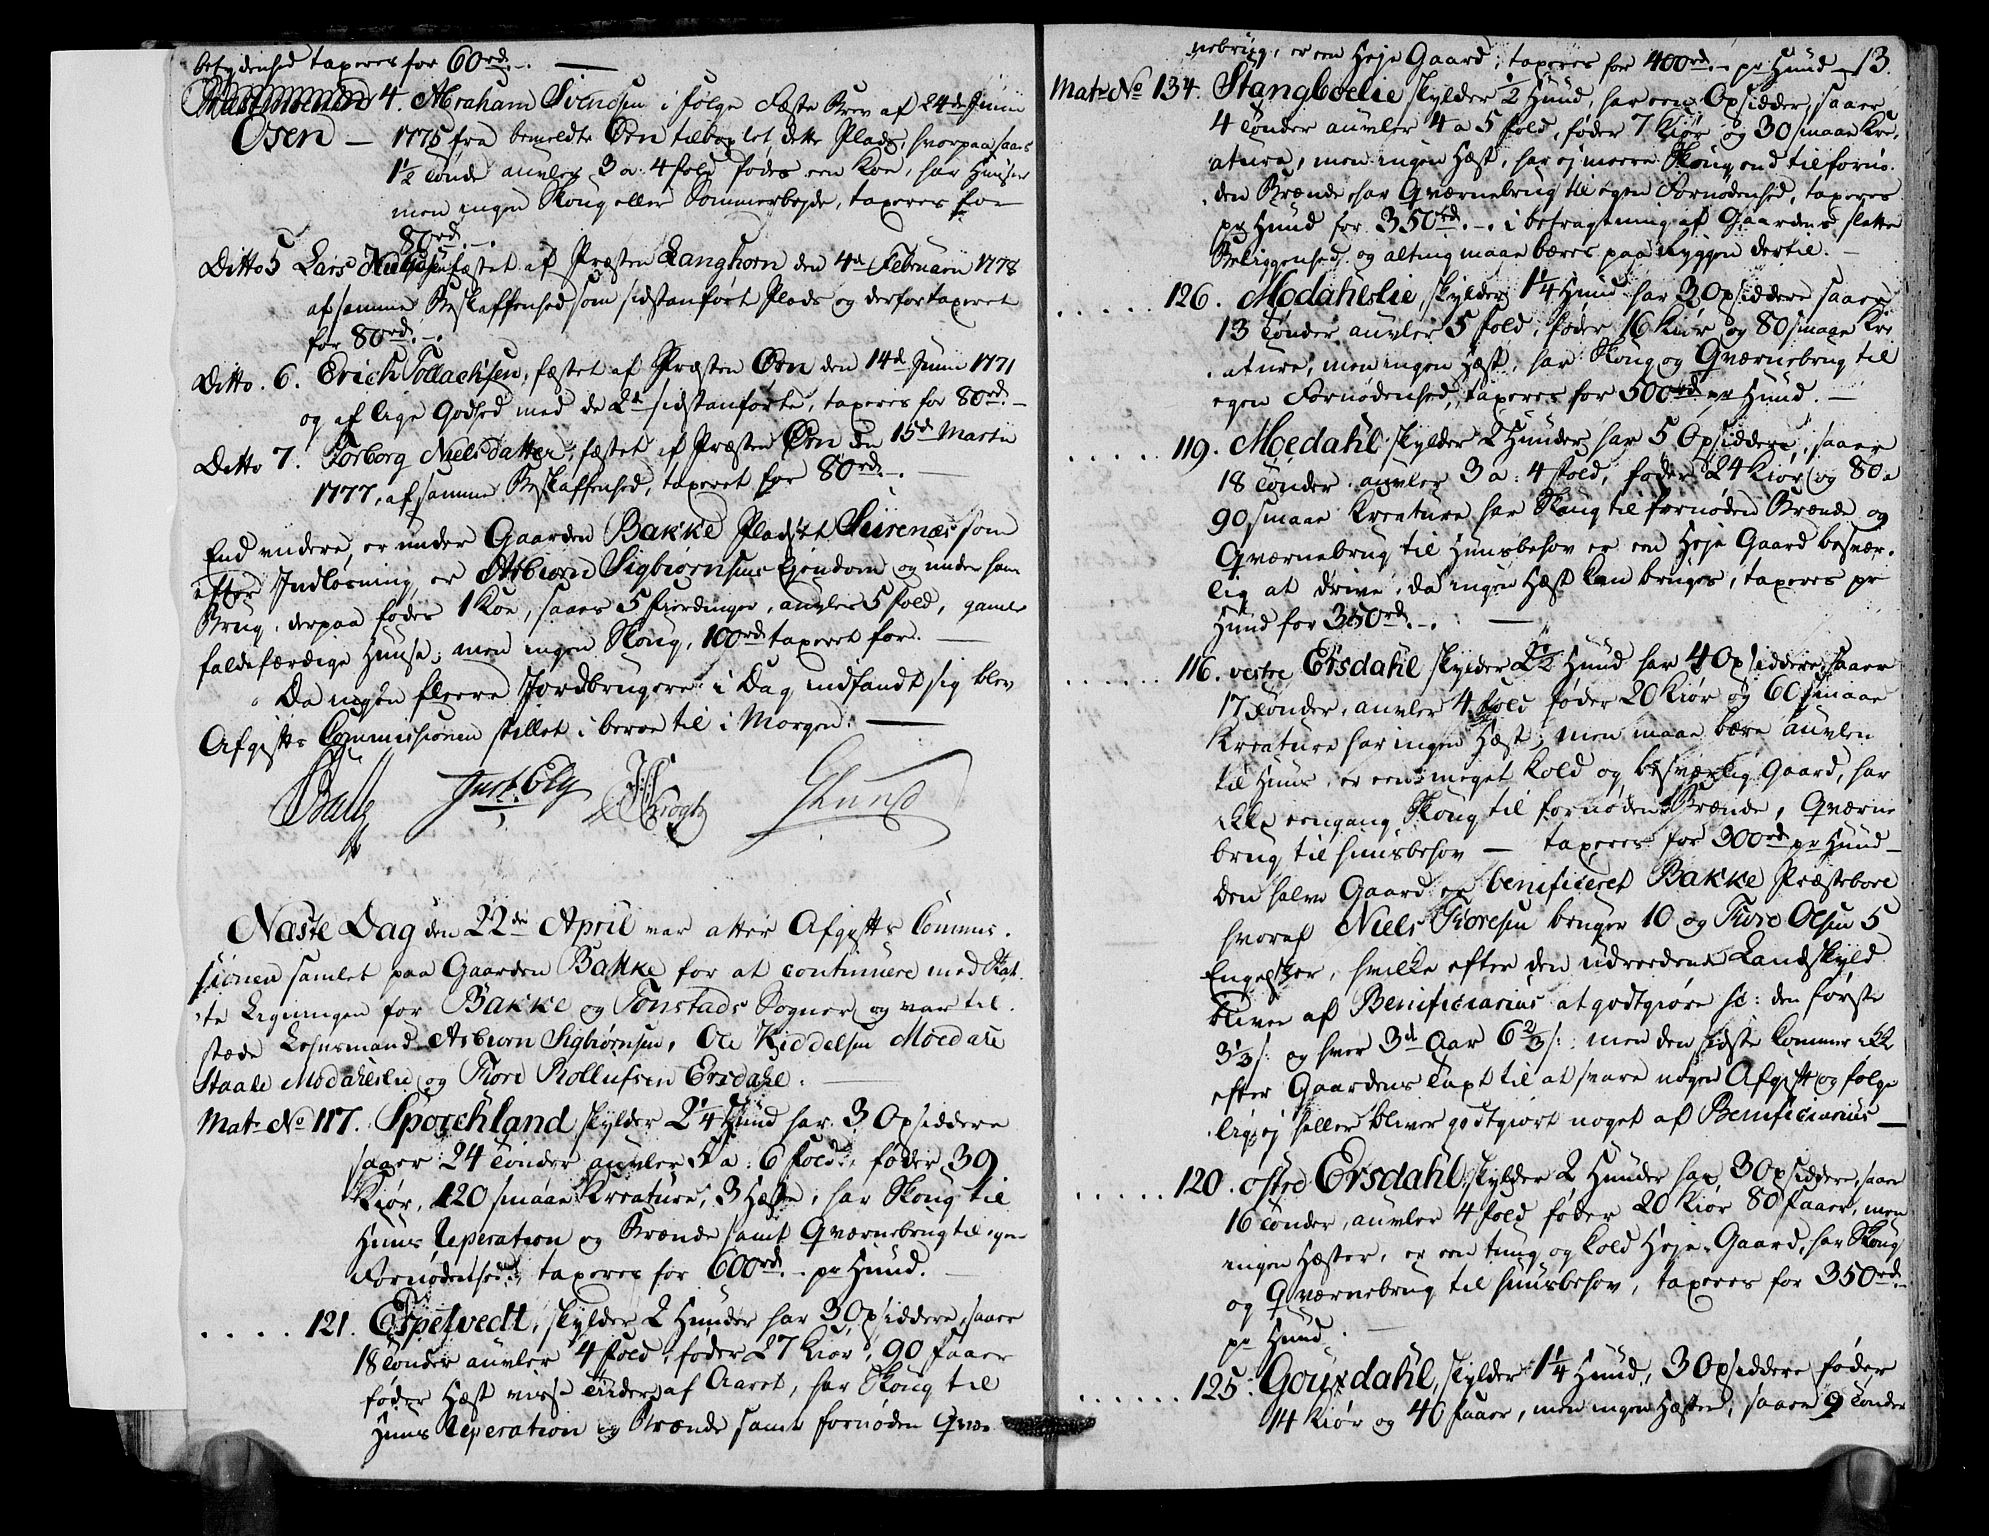 betydenhed taxeres for 60rd.. —
4. Abraham Svendsen i følge Fæste Brev af 24de Junii
Osen — 1775 fra bemeldte Ørn tilbøxlet dette Plads, hvorpaa saaes
1½ Tønde auvler 3 a 4 fold fødes een Koe, har Huuser
men ingen Skoug eller Sommerbeyde, taxeres for
80rd..
Ditto 5 Lars Nielsen fæstet af Præsten Langhorn den 4de Februarii 1778
af samme Beskaffenhed som sidstanført Plads og derfor taxeret
for 80rd..
Ditto. 6. Erich Tollachsen, fæstet af Præsten Ørn den 14de Junii 1771
og af lige Godhed med de 2de sidstanførte, taxeres for 80rd. —
Ditto 7. Torborg Nielsdatter, fæstet af Præsten Ørn den 15de Martii
1777, af samme Beskaffenhed, taxeret for 80rd..
End videre, er under Gaarden Bakke Pladset Suirenæs som
efter Indløsning er Asbiørn Sigbiørnsens Ejendom og under hans
Brug, derpaa fødes 1 Koe, saaes 5 fierdinger, auvler 5 fold, gamle
faldefærdige Huuse, men ingen Skoug, 100rd taxeret for. —
Da ingen fleere Jordbrugere i Dag indfandt sig blev
Afgifts Commissionen stillet i beroe til i Morgen. —
Just Ely Krogh GLund
Næste Dag den 22de April var atter Afgifts Commis-
sionen samlet paa Gaarden Bakke for at continuere med Skat-
te Ligningen for Bakke og Tonstads Sogner og var til-
stæde Lehnsmand Asbiørn Sigbiørnsen, Ole Kiddelsen Moedahl
Staale Modahlslie og Tiore Rollufsen Ersdahl. —
Mat No 117. Sporchland skylder 2¼ Huud har 3 Opsiddere
saaer 24 Tønder auvler 5 a: 6 fold, føder 39
Kiør, 120 smaae Kreature, 3 Heste, har Skoug til
Huus Reperation og Brænde samt Qværnebrug til egen
Fornødenhed, taxeres for 600rd.. pr Huud. —
. . . . 121. Espetvedt, skylder 2 Huuder har 3 Opsiddere, saaer
18 Tønder auvler 4 fold, føder 27 Kiør, 90 Faaer
føder Hæst visse Tiider af Aaret, har Skoug til
Huus Reperation og Brænde samt fornøden Qvær-
nebrug, er een Heje Gaard, taxeres for 400rd.. pr Huud — 13.
Mat No 134. Stangboelie skylder ½ Huud, har een Opsidder, saaer
4 Tønder auvler 4 a 5 fold, føder 7 Kiør og 30 smaae Kre-
ature, men ingen Hæst, har ej meere Skoug end til fornø-
den Brænde, har Qværnebrug til egen Fornødenhed, taxeres
pr Huud for 350rd.. i betragtning af Gaardens slette
Beliggenhed og alting maae bæres paa Ryggen dertil. —
. . . . . 126. Modahlslie, skylder 1¼ Huud har 3 Opsiddere saaer
13 Tønder auvler 5 fold, føder 16 Kiør og 80 smaae Kre-
ature, men ingen Hæst, har Skoug og Qværnebrug til
egen Fornødenhed, taxeres for 500rd pr Huud. —
. . . . . 119. Moedahl skylder 2 Huuder har 5 Opsiddere, saaer
18 Tønder auvler 3 a: 4 fold, føder 24 Kiør og 80 a
90 smaae Kreature har Skoug til fornøden Brænde og
Qværnebrug til Huusbehov er een Heje Gaard besvær-
lig at drive, da ingen Hæst kan bruges, taxeres pr
Huud for 350rd.. —
. . . . . . 116. vestre Ersdahl skylder 2½ Huud har 4 Opsiddere, saaer
17 Tønder, auvler 4 fold føder 20 Kiør og 60 smaae
Kreature har ingen Hæst, men maae bære auvlen
til Huus, er een meget kold og besværlig Gaard, har
ikke eengang Skoug til fornøden Brænde, Qværne
brug til huusbehov — taxeres for 300rd pr Huud —
den halve Gaard er benificeret Bakke Præstebore
hvoraf Niels Tioresen bruger 10 og Tiore Olsen 5
Engelsker, hvilke efter den udreedende Landskyld
bliver af Benificiarius at godtgiøre sc: den første
3⅓ s: og hver 3de Aar 6⅔ s: men den sidste kommer ikke
efter Gaardens Taxt til at svare nogen Afgift og følge-
lig ej heller bliver godtgiort noget af Benificiarius —
. . . . . . 120. østre Ersdahl, skylder 2 Huuder har 3 Opsiddere, saaer
16 Tønder, auvler 4 fold føder 20 Kiør 80 Faaer, men
ingen Hæster, er een tung og kold Heje-Gaard, har Skoug
og Qværnebrug til huusbehov, taxeres for 350rd.
pr Huud. —
. . . . . . 125. Gouxdahl, skylder 1¼ Huud, 3 Opsiddere føder
14 Kiør og 40 Faaer, men ingen Hæster, saaer 9 Tønder